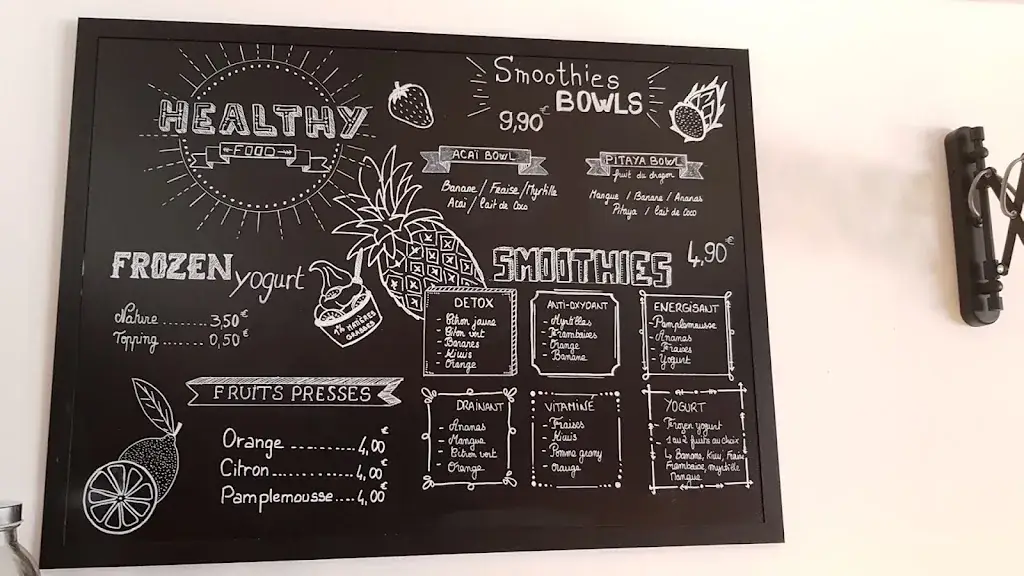 HEALTHY
FOOD
Smoothies
BOWLS
9,90€
ACAÏ BOWL
Banane / Fraise / Myrtille
Acaï / lait de Coco
PITAYA BOWL
fruit du dragon
Mangue / Banane / Ananas
Pitaya / lait de Coco
FROZEN yogurt
Nature ........ 3,50€
Topping ....... 0,50€
MATIÈRES
GRASSES
SMOOTHIES 4,90€
DETOX
- Citron jaune
- Citon vert
- Bananes
- Kiwis
- Orange
ANTI-OXYDANT
- Myrtilles
- Framboises
- Orange
- Banane
ENERGISANT
- Pamplemousse
- Ananas
- Fraises
- Yogurt
FRUITS PRESSES
Orange ........... 4,00€
Citron .............. 4,00€
Pamplemousse.... 4,00€
DRAINANT
- Ananas
- Mangue
- Citron vert
- Orange
VITAMINÉ
- Fraises
- Kiwis
- Pomme grany
- orange
YOGURT
- Frozen yogurt
- 1 ou 2 fruits au choix
↳ Banane, Kiwi, Fraise
Framboise, myrtille
Mangue